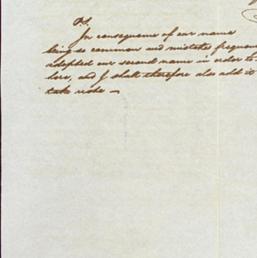 P.S.
In consequence of our name
being so common and mistakes frequen
adopted our second name in order to
here, and I shall therefore also add it
take note —